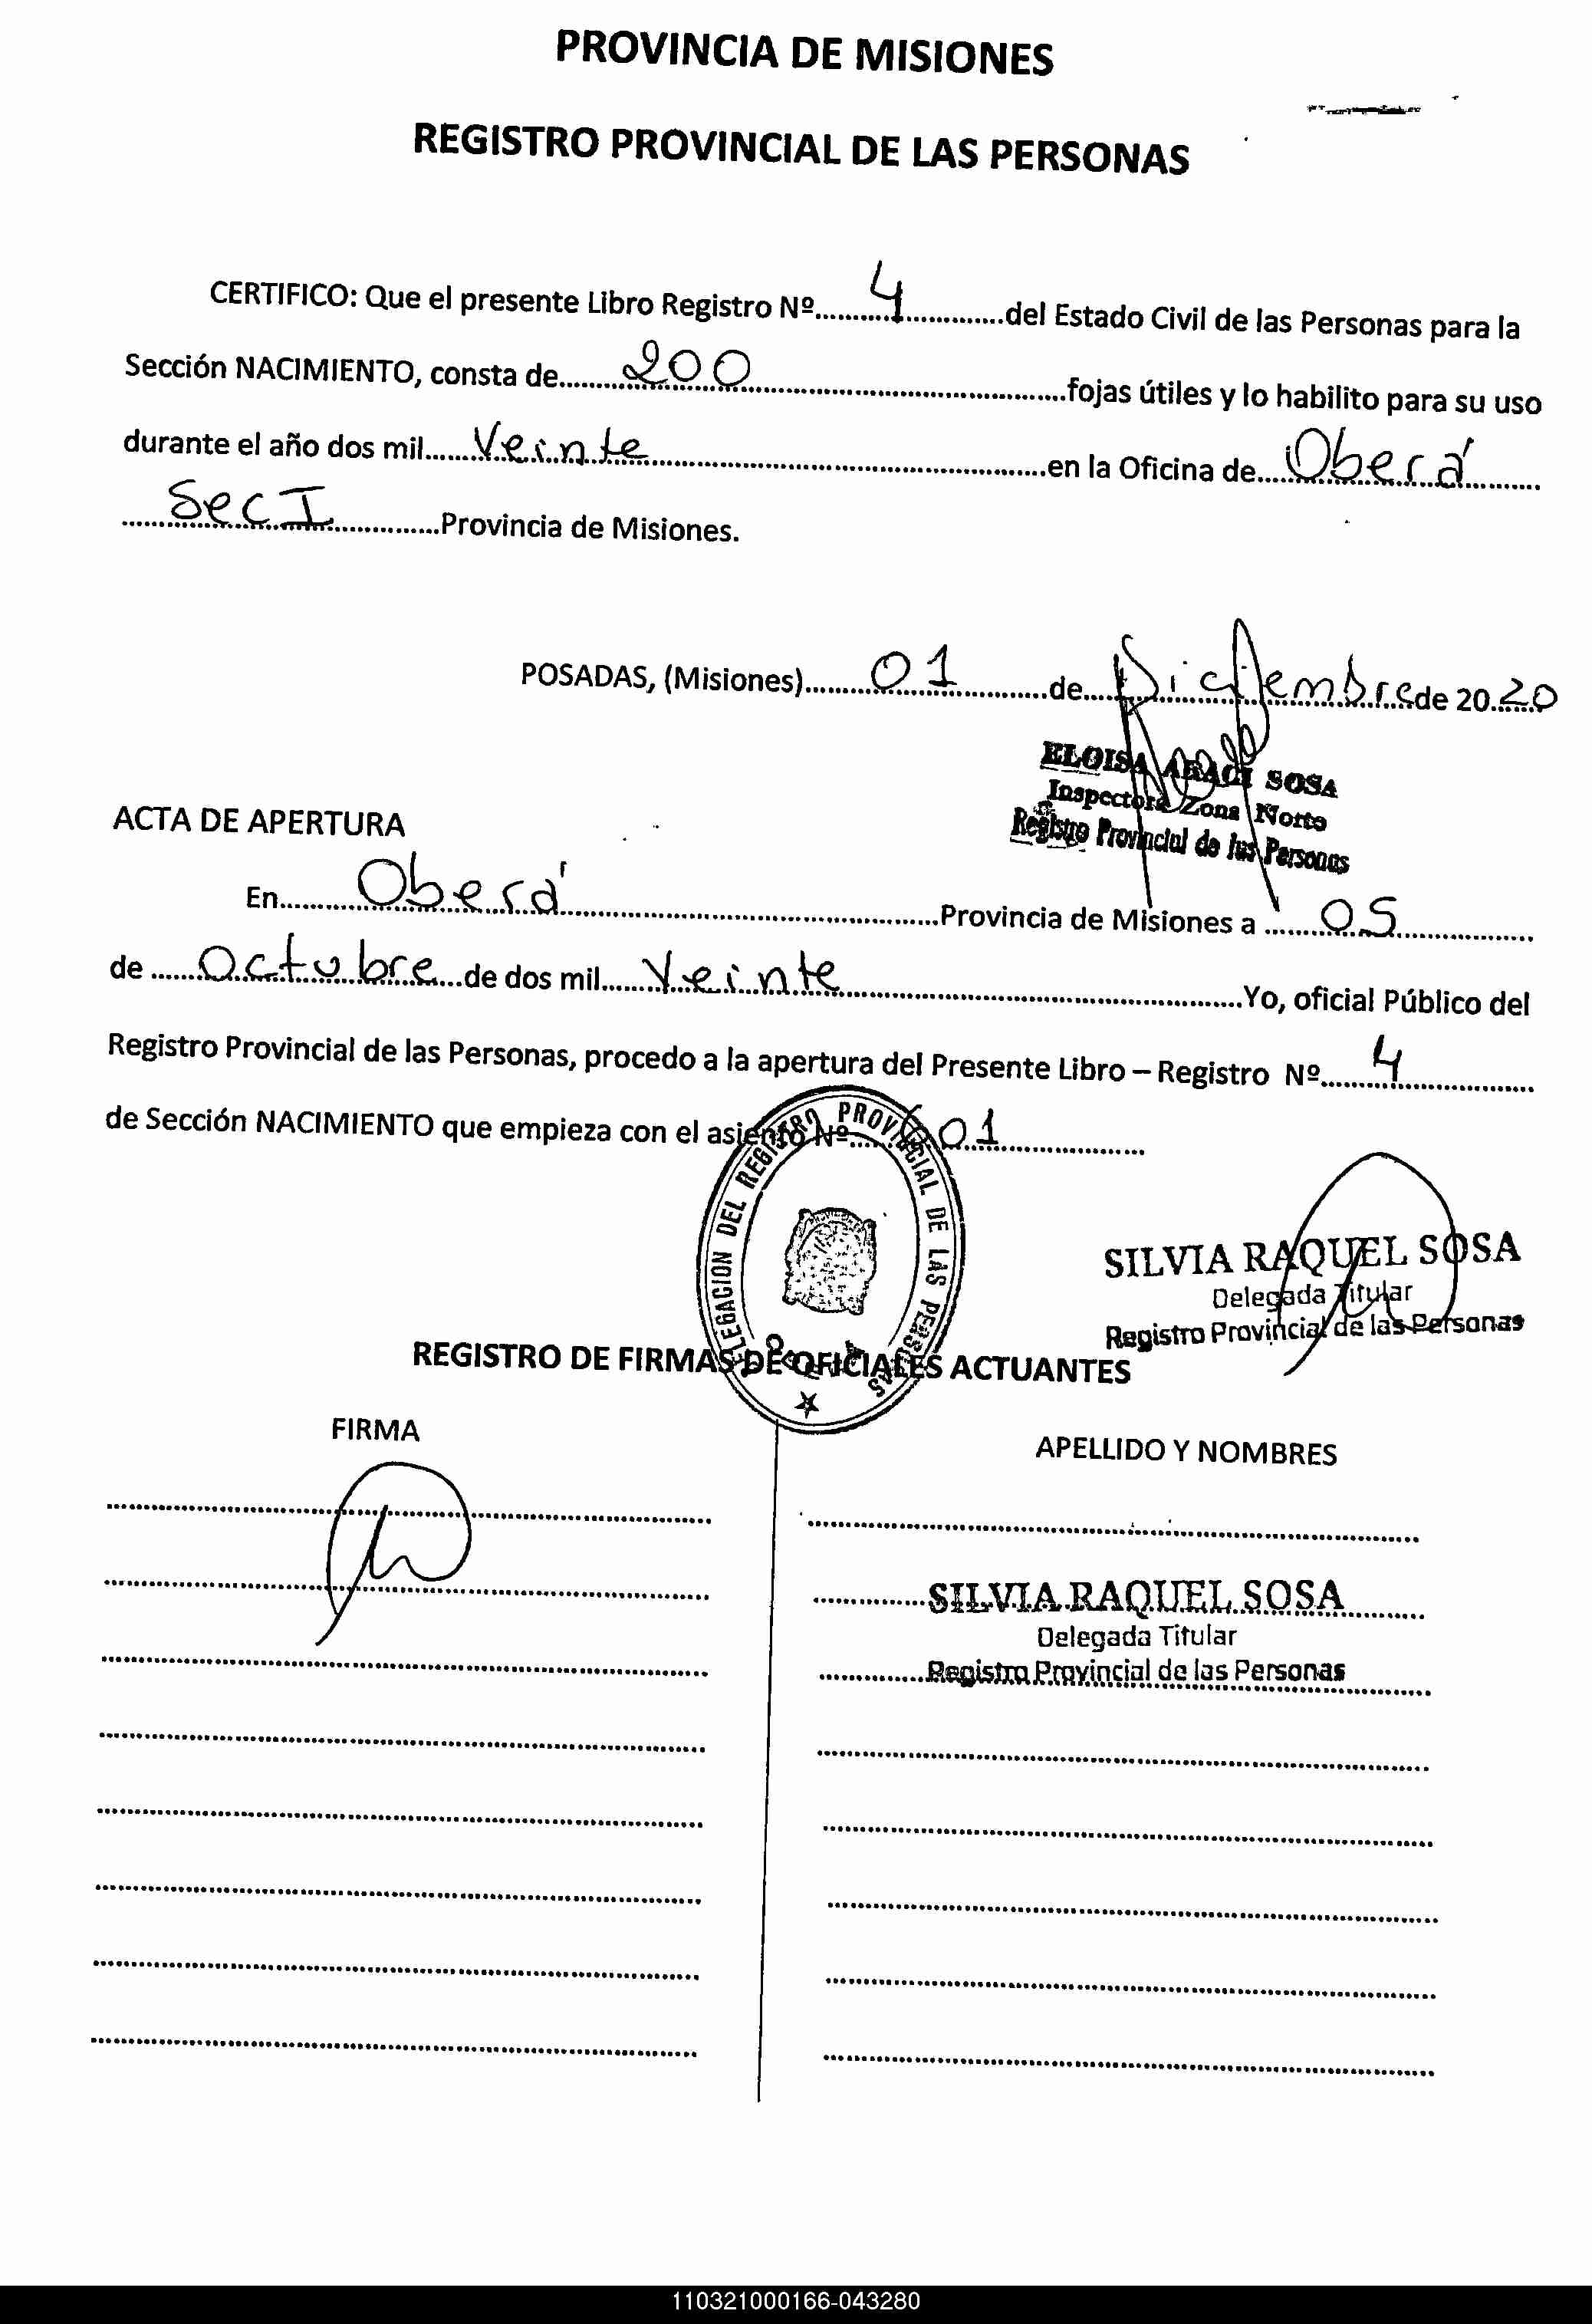 PROVINCIA DE MISIONES
REGISTRO PROVINCIAL DE LAS PERSONAS
CERTIFICO: Que el presente Libro Registro Nº 4 del Estado Civil de las Personas para la
Sección NACIMIENTO, consta de 200 fojas útiles y lo habilito para su uso
durante el año dos mil Veinte en la Oficina de Oberá
Sec I Provincia de Misiones.
POSADAS, (Misiones) 01 de Diciembre de 20.20
ELOISA ARACI SOSA
Inspectora Zona Norte
Registro Provincial de las Personas
ACTA DE APERTURA
En Oberá Provincia de Misiones a 05
de Octubre de dos mil Veinte Yo, oficial Público del
Registro Provincial de las Personas, procedo a la apertura del Presente Libro – Registro Nº 4
de Sección NACIMIENTO que empieza con el asiento Nº 601
DELEGACION DEL REGISTRO PROVINCIAL DE LAS PERSONAS
SILVIA RAQUEL SOSA
Delegada Titular
Registro Provincial de las Personas
REGISTRO DE FIRMAS DE OFICIALES ACTUANTES
FIRMA
APELLIDO Y NOMBRES
SILVIA RAQUEL SOSA
Delegada Titular
Registro Provincial de las Personas
110321000166-043280